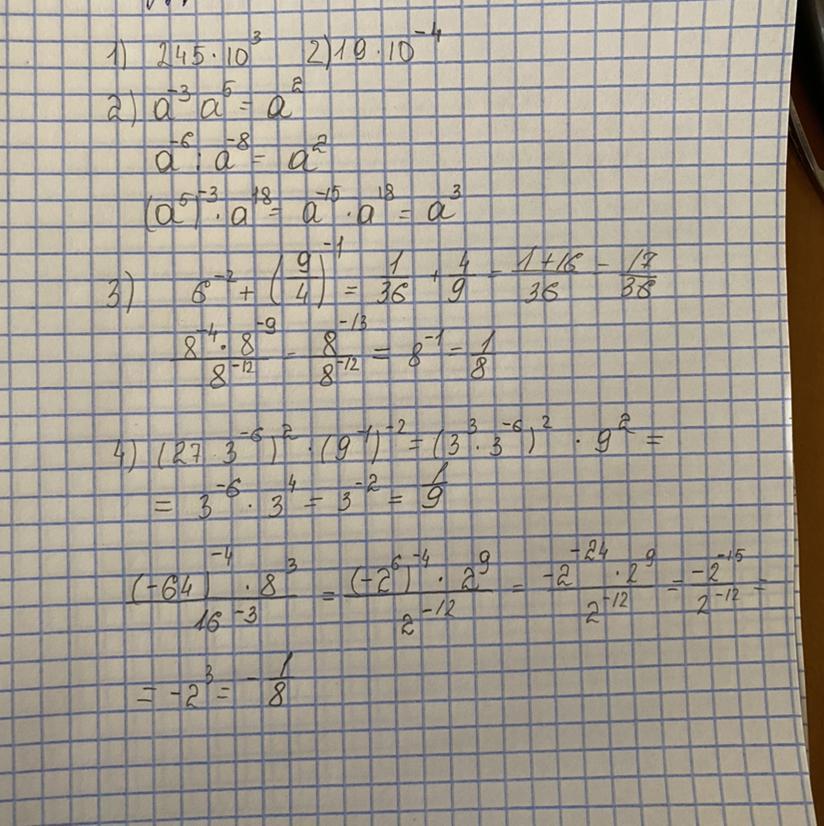 1) 245·10³ 2) 19·10⁻⁴
2) a⁻³ a⁵ = a²
a⁻⁶ : a⁻⁸ = a²
(a⁵)⁻³ · a¹⁸ = a⁻¹⁵ · a¹⁸ = a³
3) 6⁻² + (9/4)⁻¹ = 1/36 + 4/9 = (1+16)/36 = 17/36
(8⁻⁴ · 8⁻⁹)/8⁻¹² = 8⁻¹³/8⁻¹² = 8⁻¹ = 1/8
4) (27 3⁻⁶)² · (9⁻¹)⁻² = (3³ · 3⁻⁶)² · 9² =
= 3⁻⁶ · 3⁴ = 3⁻² = 1/9
((-64)⁻⁴ · 8³)/16⁻³ = ((-2⁶)⁻⁴ · 2⁹)/2⁻¹² = (-2⁻²⁴ · 2⁹)/2⁻¹² = -2⁻¹⁵/2⁻¹² =
= -2³ = -1/8